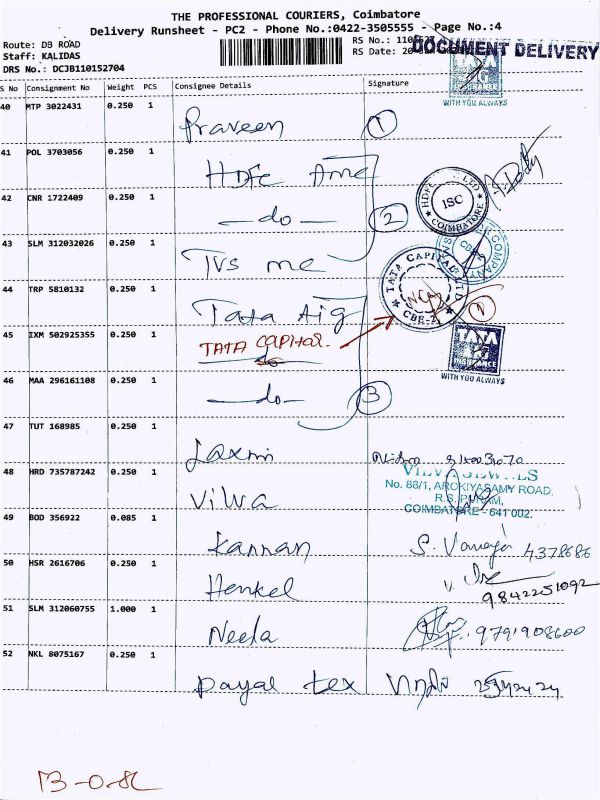 THE PROFESSIONAL COURIERS, Coimbatore
Delivery Runsheet - PC2 - Phone No.:0422-3505555 - Page No.:4
Route: DB ROAD
RS No.:
DOCUMENT DELIVERY
Staff: KALIDAS
RS Date:
DRS No.: DCJB110152704
WITH YOU ALWAYS
S No Consignment No Weight PCS Consignee Details Signature
40 MTP 3022431 0.250 1
Praveen 1
41 POL 3703056 0.250 1
HDFC Ame
42 CNR 1722409 0.250 1
HDFC LTD ISC COIMBATORE
-do- 2
43 SLM 312032026 0.250 1
Tvs me
44 TRP 5810132 0.250 1
TATA CAPITAL LTD CBE-2
Tata Aig 1
45 IXM 502925355 0.250 1
TATA CAPITAL
do
TATA AIG INSURANCE
WITH YOU ALWAYS
46 MAA 296161108 0.250 1
-do- 3
47 TUT 168985 0.250 1
Laxmi
48 HRD 735787242 0.250 1
Vilva
No. 88/1, AROKIYASAMY ROAD,
R.S. PURAM,
COIMBATORE - 641 002.
49 BOD 356922 0.085 1
Kannan 4378686
50 HSR 2616706 0.250 1
Henkel 9842251092
51 SLM 312060755 1.000 1
Neela 9791908600
52 NKL 8075167 0.250 1
Payal tex